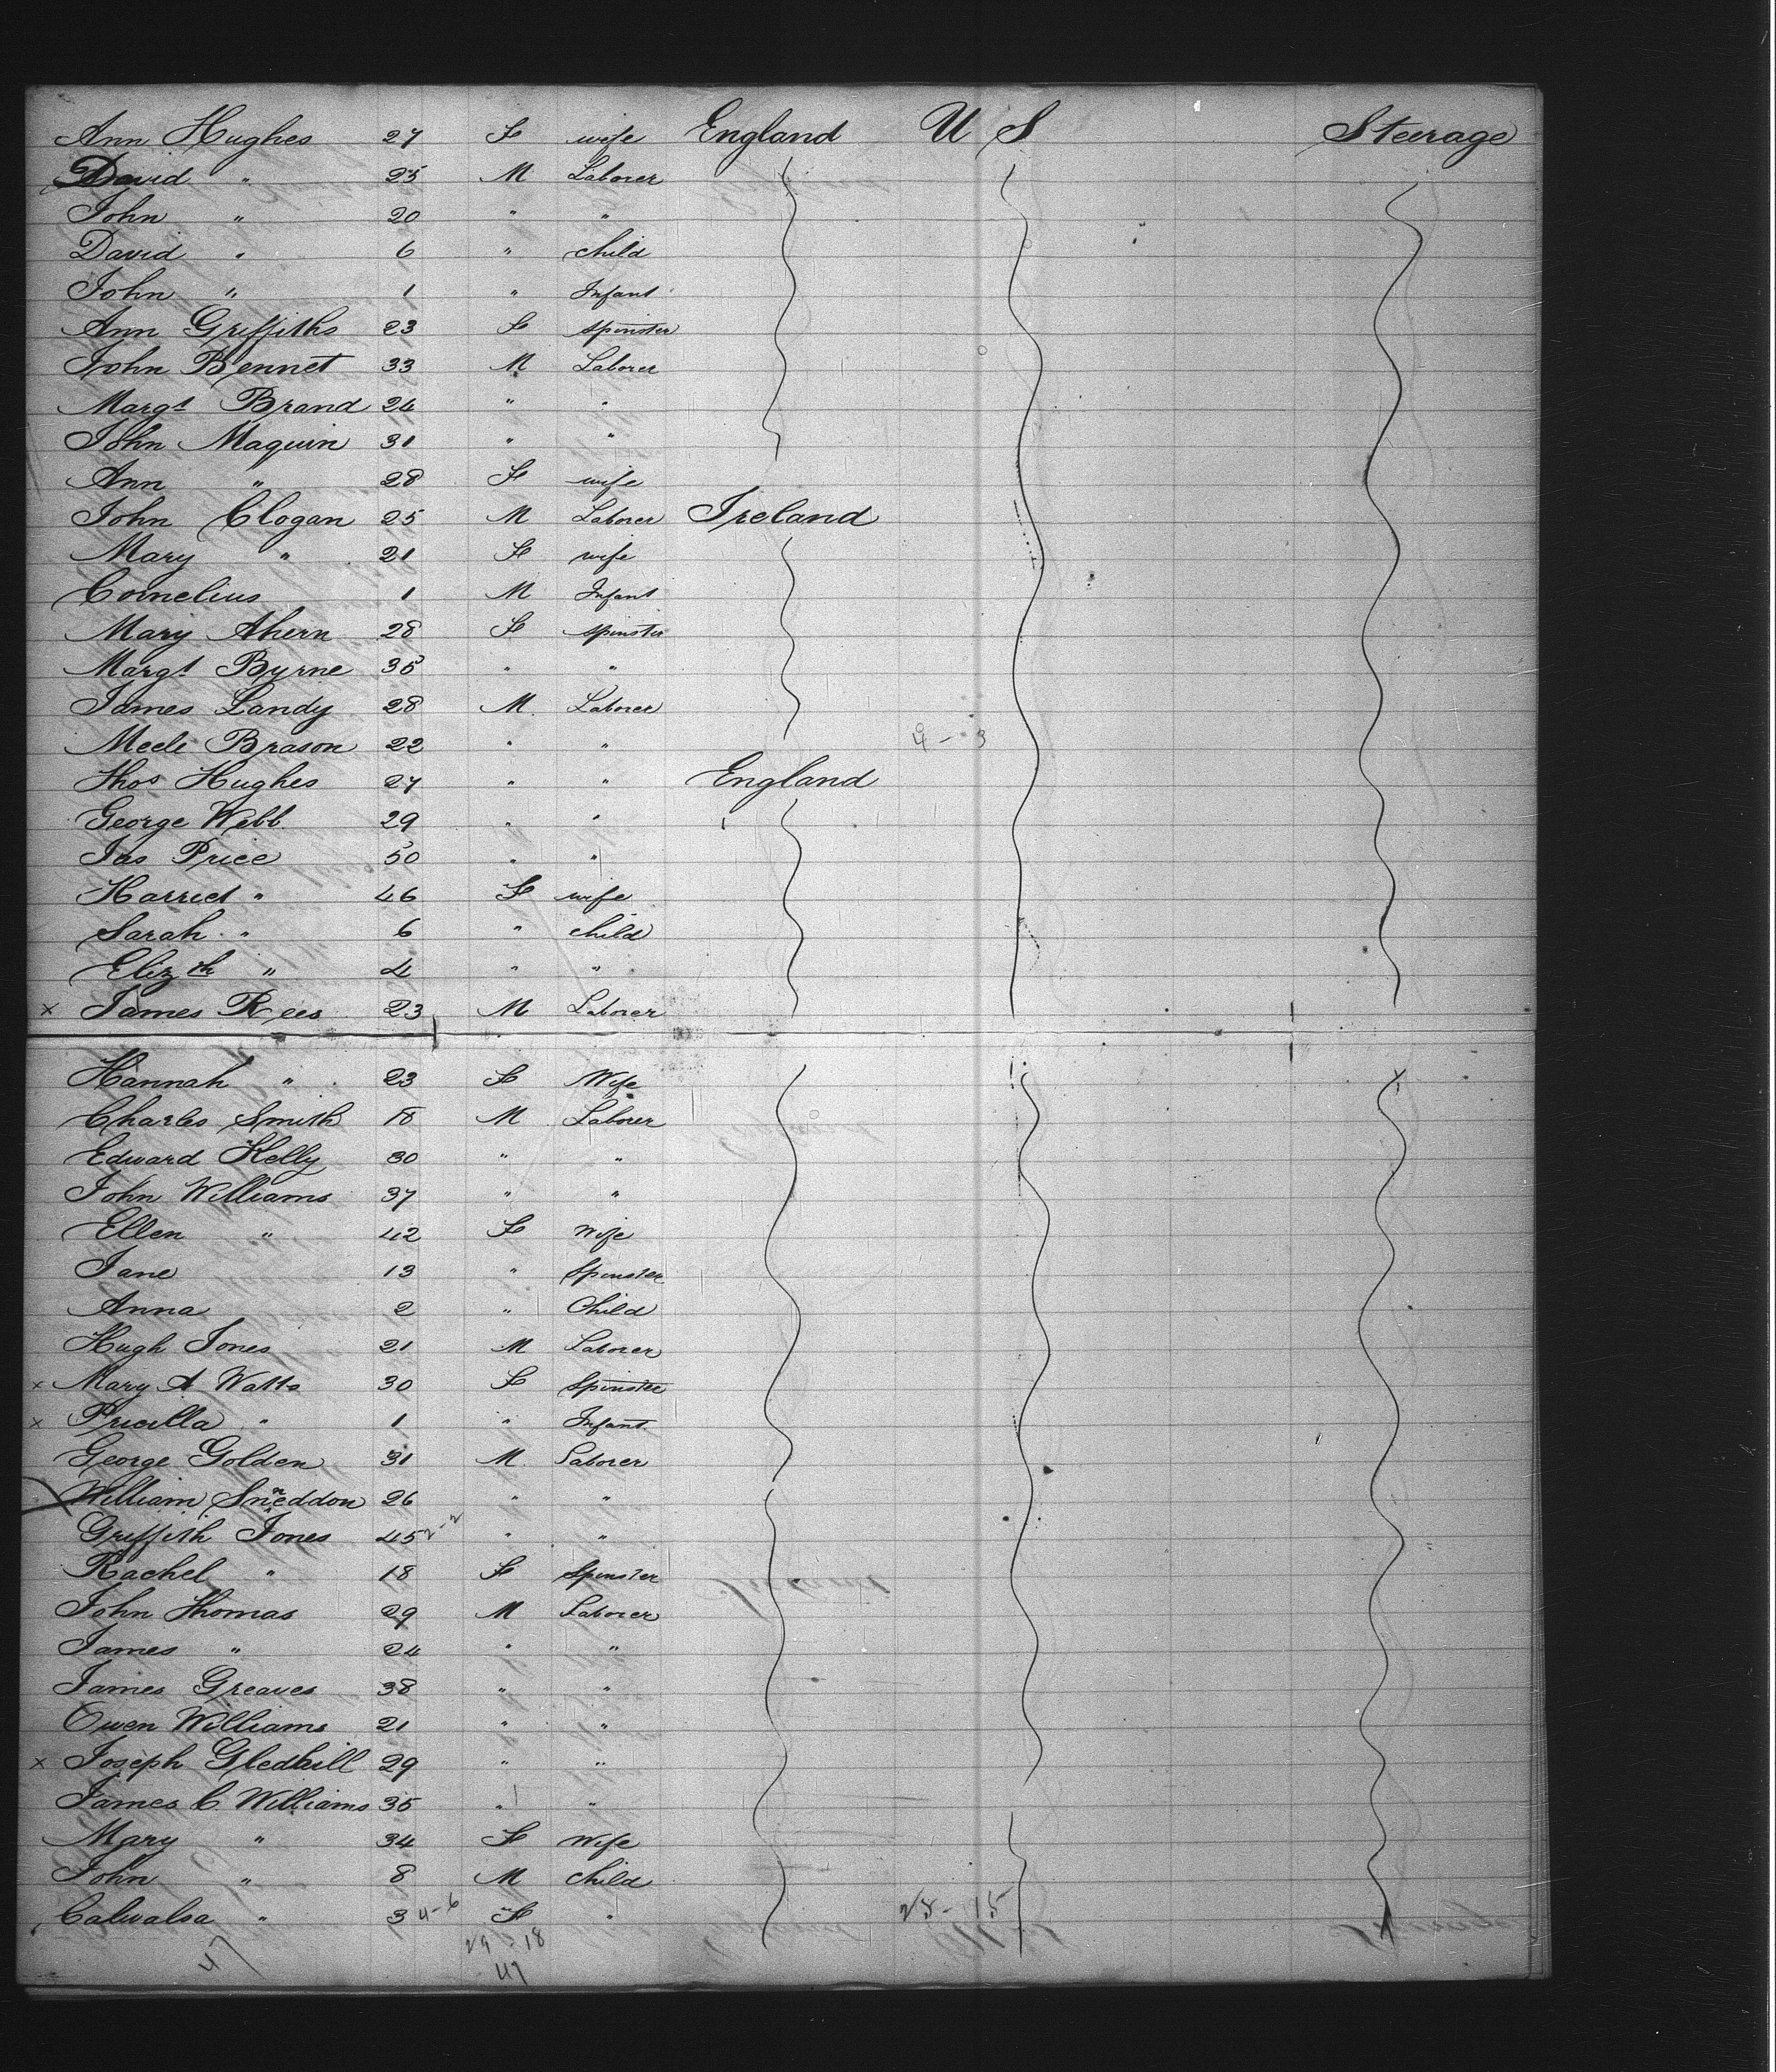 Ann Hughes 27 F wife England U S Steerage
David " 25 M Laborer
John " 20 " "
David " 6 " child
John " 1 " Infant
Ann Griffiths 23 F spinster
John Bennet 33 M Laborer
Margt Brand 24 " "
John Maguin 31 " "
Ann " 28 F wife
John Clogan 25 M Laborer Ireland
Mary " 21 F wife
Cornelius 1 M Infant
Mary Ahern 28 F spinster
Margt Byrne 35 " "
James Landy 28 M Laborer
Brason 22 " " 4 - 3
Thos Hughes 27 " " England
George Webb 29 " "
Jas Price 50 " "
Harriet " 46 F wife
Sarah " 6 " child
Elizth " 4 " "
x James Rees 23 M Laborer
Hannah " 23 F Wife
Charles Smith 18 M Laborer
Edward Kelly 30 " "
John Williams 37 " "
Ellen " 42 F Wife
Jane 13 " Spinster
Anna 2 " Child
Hugh Jones 21 M Laborer
x Mary A Watts 30 F Spinster
x Pricilla " 1 " Infant
George Golden 31 M Laborer
William Sneddon 26 " "
Griffith Jones 45 2-2 " "
Rachel " 18 F Spinster
John Thomas 29 M Laborer
James " 24 " "
James Greaves 38 " "
Owen Williams 21 " "
x Joseph Gledhill 29 " "
James C. Williams 35 " "
Mary " 34 F Wife
John " 8 M child
" 3 4-6 F " 28 - 15
29 - 18
47 47